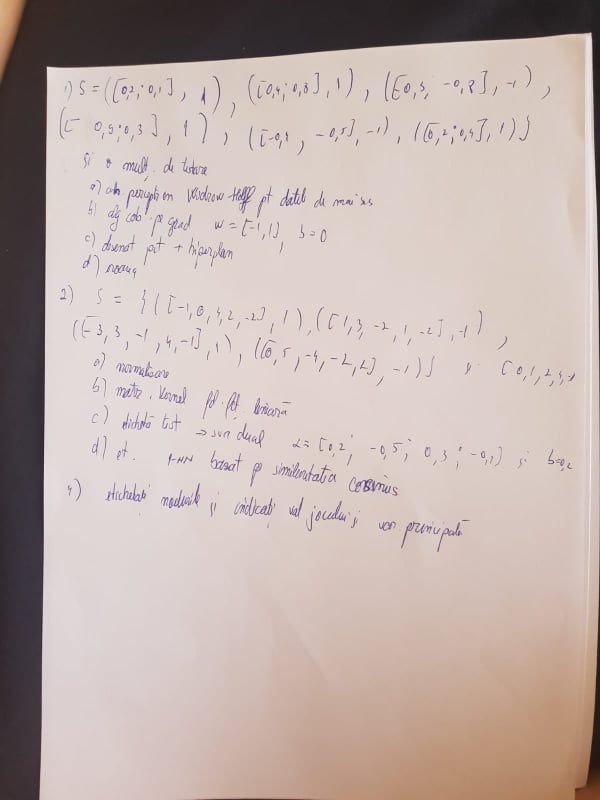 1) S = ([0,2; 0,1], 1), ([0,4; 0,8], 1), ([0,5; -0,8], -1),
([- 0,9; 0,3], 1), ([-0,4, -0,5], -1), ([0,2; 0,4], 1)}
și o mulț. de testare
a) perceptron Widrow-Hoff pt datele de mai sus
b) alg cob. pe grad w = [-1,1], b=0
c) desenat pct + hiperplan
d)
2) S = {([-1,0,4,2,-2], 1), ([1,3,-2,1,-2], -1),
([-3,3,-1,4,-1], 1), ([0,5,-4,-2,2], -1)} și [0,1,2,
a) normalizare
b) matr. kernel pt. fct. liniară
c) etichetă test → svm dual α=[0,2; -0,5; 0,3; și b=0,2
d) et. 1-NN bazat pe similaritatea cosinus
4) etichetați nodurile și indicați val jocului și var. principală